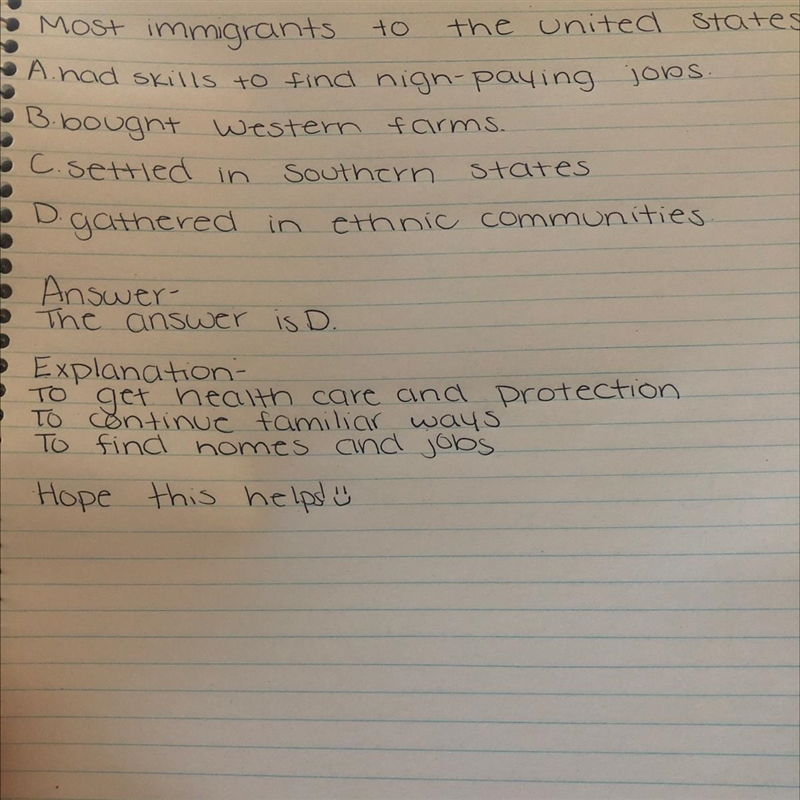 Most immigrants to the united states
A. had skills to find high-paying jobs.
B. bought western farms.
C. settled in southern states
D. gathered in ethnic communities.
Answer-
The answer is D.
Explanation-
To get health care and protection
To continue familiar ways
To find homes and jobs
Hope this helps! :)